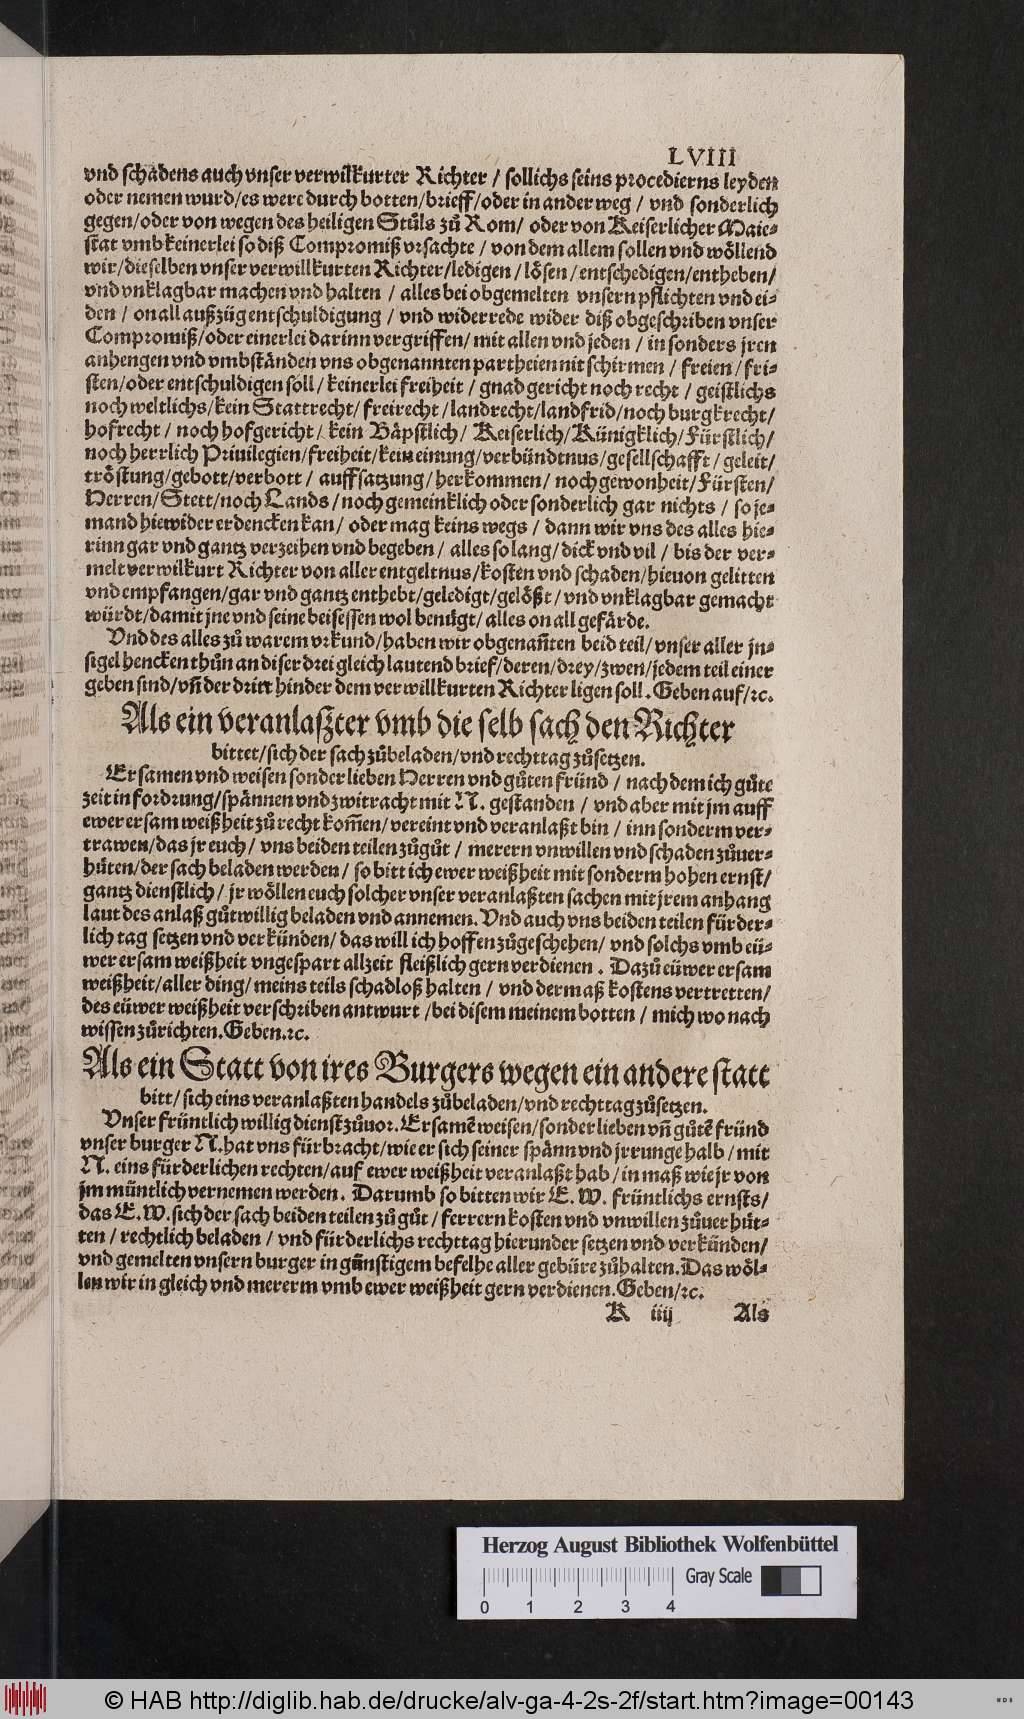 LVIII
vnd schådens auch vnser verwilkurter Richter / sollichs seins procedierns leyden
oder nemen wurd/es were durch botten/brieff/oder in ander weg / vnd sonderlich
gegen/oder von wegen des heiligen Stůls zů Rom/ oder von Keiserlicher Maie⸗
stat vmb keinerlei so diß Compromiß vrsachte / von dem allem sollen vnd wöllend
wir/dieselben vnser verwillkurten Richter/ledigen / lösen / entschedigen/entheben/
vnd vnklagbar machen vnd halten / alles bei obgemelten vnsern pflichten vnd ei⸗
den / on all außzüg entschuldigung / vnd widerrede wider diß obgeschriben vnser
Compromiß/oder einerlei darinn vergriffen/ mit allen vnd jeden / in sonders jren
anhengen vnd vmbständen vns obgenannten partheien nit schirmen / freien / fri⸗
sten/oder entschuldigen soll / keinerlei freiheit / gnad gericht noch recht / geistlichs
noch weltlichs/kein Stattrecht/ freirecht/landrecht/landfrid/noch burgkrecht/
hofrecht / noch hofgericht / kein Båpstlich/ Keiserlich/Künigklich/Fürstlich/
noch herrlich Priuilegien/freiheit/kein einung/verbündtnus/gesellschafft/geleit/
tröstung/gebott/verbott / auffsatzung/herkommen/ noch gewonheit/Fürsten/
Herren/Stett/noch Lands / noch gemeinklich oder sonderlich gar nichts / so je⸗
mand hiewider erdencken kan/ oder mag keins wegs / dann wir vns des alles hie⸗
rinn gar vnd gantz verzeihen vnd begeben/ alles so lang/dick vnd vil / bis der ver⸗
melt verwilkurt Richter von aller entgeltnus/kosten vnd schaden/hieuon gelitten
vnd empfangen/gar vnd gantz enthebt/geledigt/gelößt/ vnd vnklagbar gemacht
würdt/damit jne vnd seine beisessen wol benügt/ alles on all gefårde.
Vnd des alles zů warem vrkund/haben wir obgenañten beid teil/vnser aller jn⸗
sigel hencken thůn an diser drei gleich lautend brief/deren/drey/zwen/jedem teil einer
geben sind/vñ der dritt hinder dem verwillkurten Richter ligen soll. Geben auf/ꝛc.
Als ein veranlaßter vmb die selb sach den Richter
bittet/sich der sach zůbeladen/vnd rechttag zůsetzen.
Ersamen vnd weisen sonder lieben Herren vnd gůten fründ / nach dem ich gůte
zeit in fordrung/spånnen vnd zwitracht mit N. gestanden / vnd aber mit jm auff
ewer ersam weißheit zů recht kom̃en/vereint vnd veranlaßt bin / inn sonderm ver⸗
trawen/das jr euch/ vns beiden teilen zůgůt / merern vnwillen vnd schaden zůuer⸗
hüten/der sach beladen werden / so bitt ich ewer weißheit mit sonderm hohen ernst/
gantz dienstlich / jr wöllen euch solcher vnser veranlaßten sachen mit jrem anhang
laut des anlaß gůtwillig beladen vnd annemen. Vnd auch vns beiden teilen fürder⸗
lich tag setzen vnd verkünden/das will ich hoffen zůgeschehen/ vnd solchs vmb eü⸗
wer ersam weißheit vngespart allzeit fleißlich gern verdienen . Dazů eüwer ersam
weißheit/aller ding/meins teils schadloß halten / vnd dermaß kostens vertretten/
des eüwer weißheit verschriben antwurt /bei disem meinem botten / mich wo nach
wissen zůrichten.Geben.ꝛc.
Als ein Statt von ires Burgers wegen ein andere statt
bitt/sich eins veranlaßten handels zůbeladen/vnd rechttag zůsetzen.
Vnser früntlich willig dienst zůuor. Ersamẽ weisen/sonder lieben vñ gůtẽ fründ
vnser burger N.hat vns fürbracht/wie er sich seiner spånn vnd jrrunge halb / mit
N. eins fürderlichen rechten/auf ewer weißheit veranlaßt hab / in maß wie jr von
jm müntlich vernemen werden. Darumb so bitten wir E. W. früntlichs ernsts/
das E.W.sich der sach beiden teilen zů gůt / ferrern kosten vnd vnwillen zůuerhüt⸗
ten / rechtlich beladen / vnd fürderlichs rechttag hierunder setzen vnd verkünden/
vnd gemelten vnsern burger in günstigem befelhe aller gebüre zůhalten.Das wöl⸗
len wir in gleich vnd mererm vmb ewer weißheit gern verdienen.Geben/ꝛc.
K iiij Als
Herzog August Bibliothek Wolfenbüttel
Gray Scale
0 1 2 3 4
© HAB http://diglib.hab.de/drucke/alv-ga-4-2s-2f/start.htm?image=00143